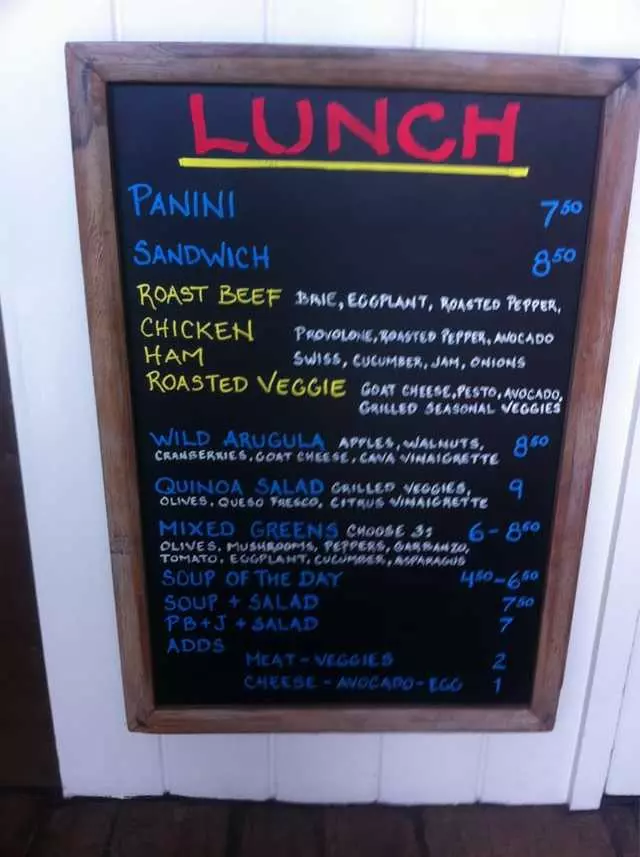 LUNCH
PANINI 7⁵⁰
SANDWICH 8⁵⁰
ROAST BEEF BRIE, EGGPLANT, ROASTED PEPPER,
CHICKEN PROVOLONE, ROASTED PEPPER, AVOCADO
HAM SWISS, CUCUMBER, JAM, ONIONS
ROASTED VEGGIE GOAT CHEESE, PESTO, AVOCADO,
GRILLED SEASONAL VEGGIES
WILD ARUGULA APPLES, WALNUTS, 8⁵⁰
CRANBERRIES, GOAT CHEESE, CAVA VINAIGRETTE
QUINOA SALAD GRILLED VEGGIES, 9
OLIVES, QUESO FRESCO, CITRUS VINAIGRETTE
MIXED GREENS CHOOSE 3: 6-8⁵⁰
OLIVES, MUSHROOMS, PEPPERS, GARBANZO,
TOMATO, EGGPLANT, CUCUMBER, ASPARAGUS
SOUP OF THE DAY 4⁵⁰-6⁵⁰
SOUP + SALAD 7⁵⁰
PB+J + SALAD 7
ADDS
MEAT - VEGGIES 2
CHEESE - AVOCADO - EGG 1